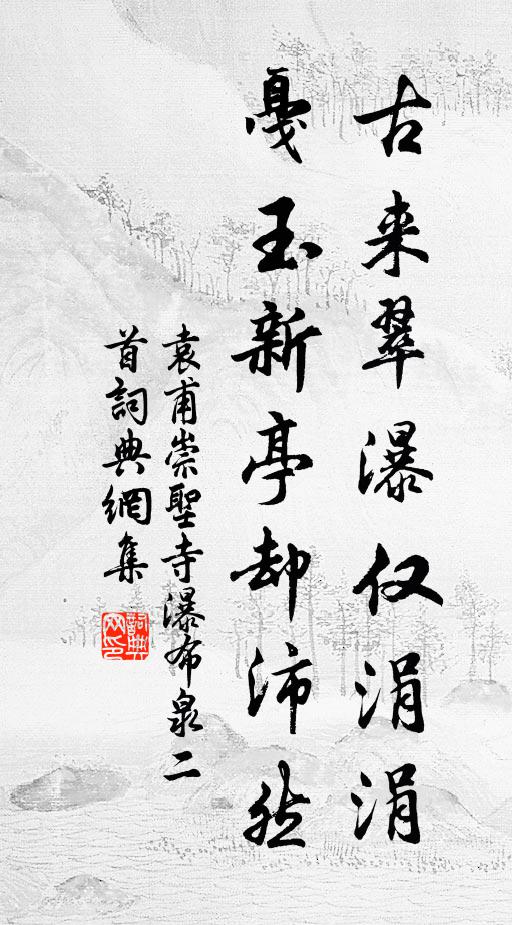 古来翠瀑仅涓涓
戛玉新亭却沛然
袁甫崇聖寺瀑布泉二
首詞典網集
詞典网印